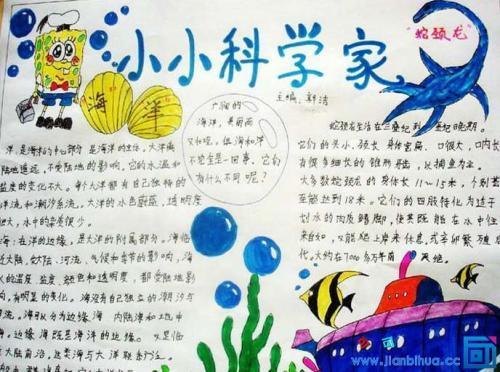 小小科学家
主编：郭洁
"蛇颈龙"
海 洋
广阔的
海洋，美丽而
又壮观。但海和洋
不完全是一回事，它们
有什么不同呢？
洋，是海洋的中心部分，是海洋的主体。大洋离
陆地遥远，不受陆地的影响，它的水温和
盐度的变化不大。每个大洋都有自己独特的
洋流和潮汐系统。大洋的水色蔚蓝，透明度
很大，水中的杂质很少。
海：在洋的边缘，是大洋的附属部分。海临
近大陆，
河流、气候和季节的影响，海
水的温度、盐度、颜色和透明度，都受陆地影
响，有明显的变化。海没有自己独立的潮汐与
海流。海可以分为边缘海、内陆海和地中
海。边缘海既是海洋的边缘，又是临
近大陆前沿，这类海与大洋联系广泛。
蛇颈龙生活在三叠纪到
纪晚期。
它们的头小，颈长，身体宽扁，口很大，口内长
有很多细长的锥形牙齿，以捕鱼为生。
大多数蛇颈龙的身体长11～15米，个别甚
至能达到18米。它们的四肢特化为适于
划水的肉质鳍脚，使其既能在水中往
来自如，又能爬上岸来休息，或产卵繁殖后
代。大约在7000多万年前灭绝。
www.jianbihua.cc